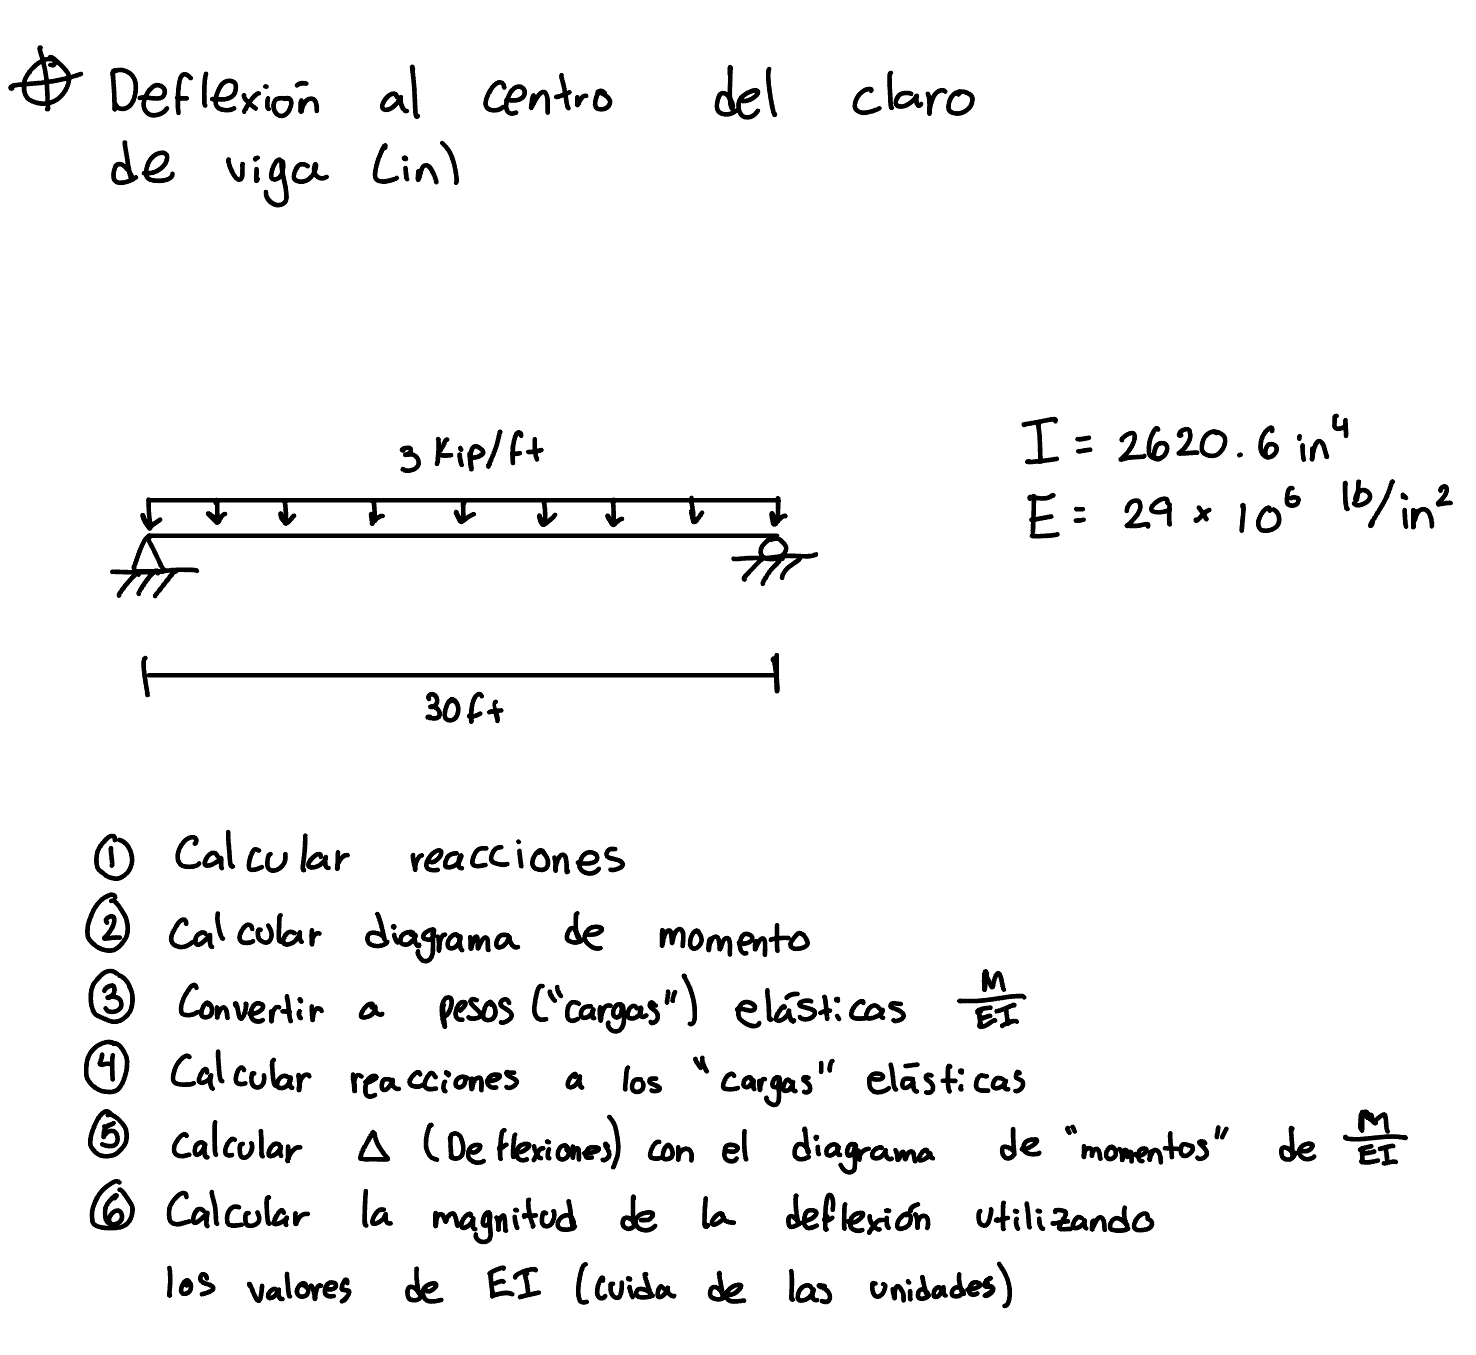 Deflexión al centro del claro
de viga (in)
3 Kip/ft
I = 2620.6 in⁴
E = 29 × 10⁶ lb/in²
30ft
① Calcular reacciones
② Calcular diagrama de momento
③ Convertir a pesos ("cargas") elásticas M/EI
④ Calcular reacciones a los "cargas" elásticas
⑤ Calcular Δ (Deflexiones) con el diagrama de "momentos" de M/EI
⑥ Calcular la magnitud de la deflexión utilizando
los valores de EI (cuida de las unidades)